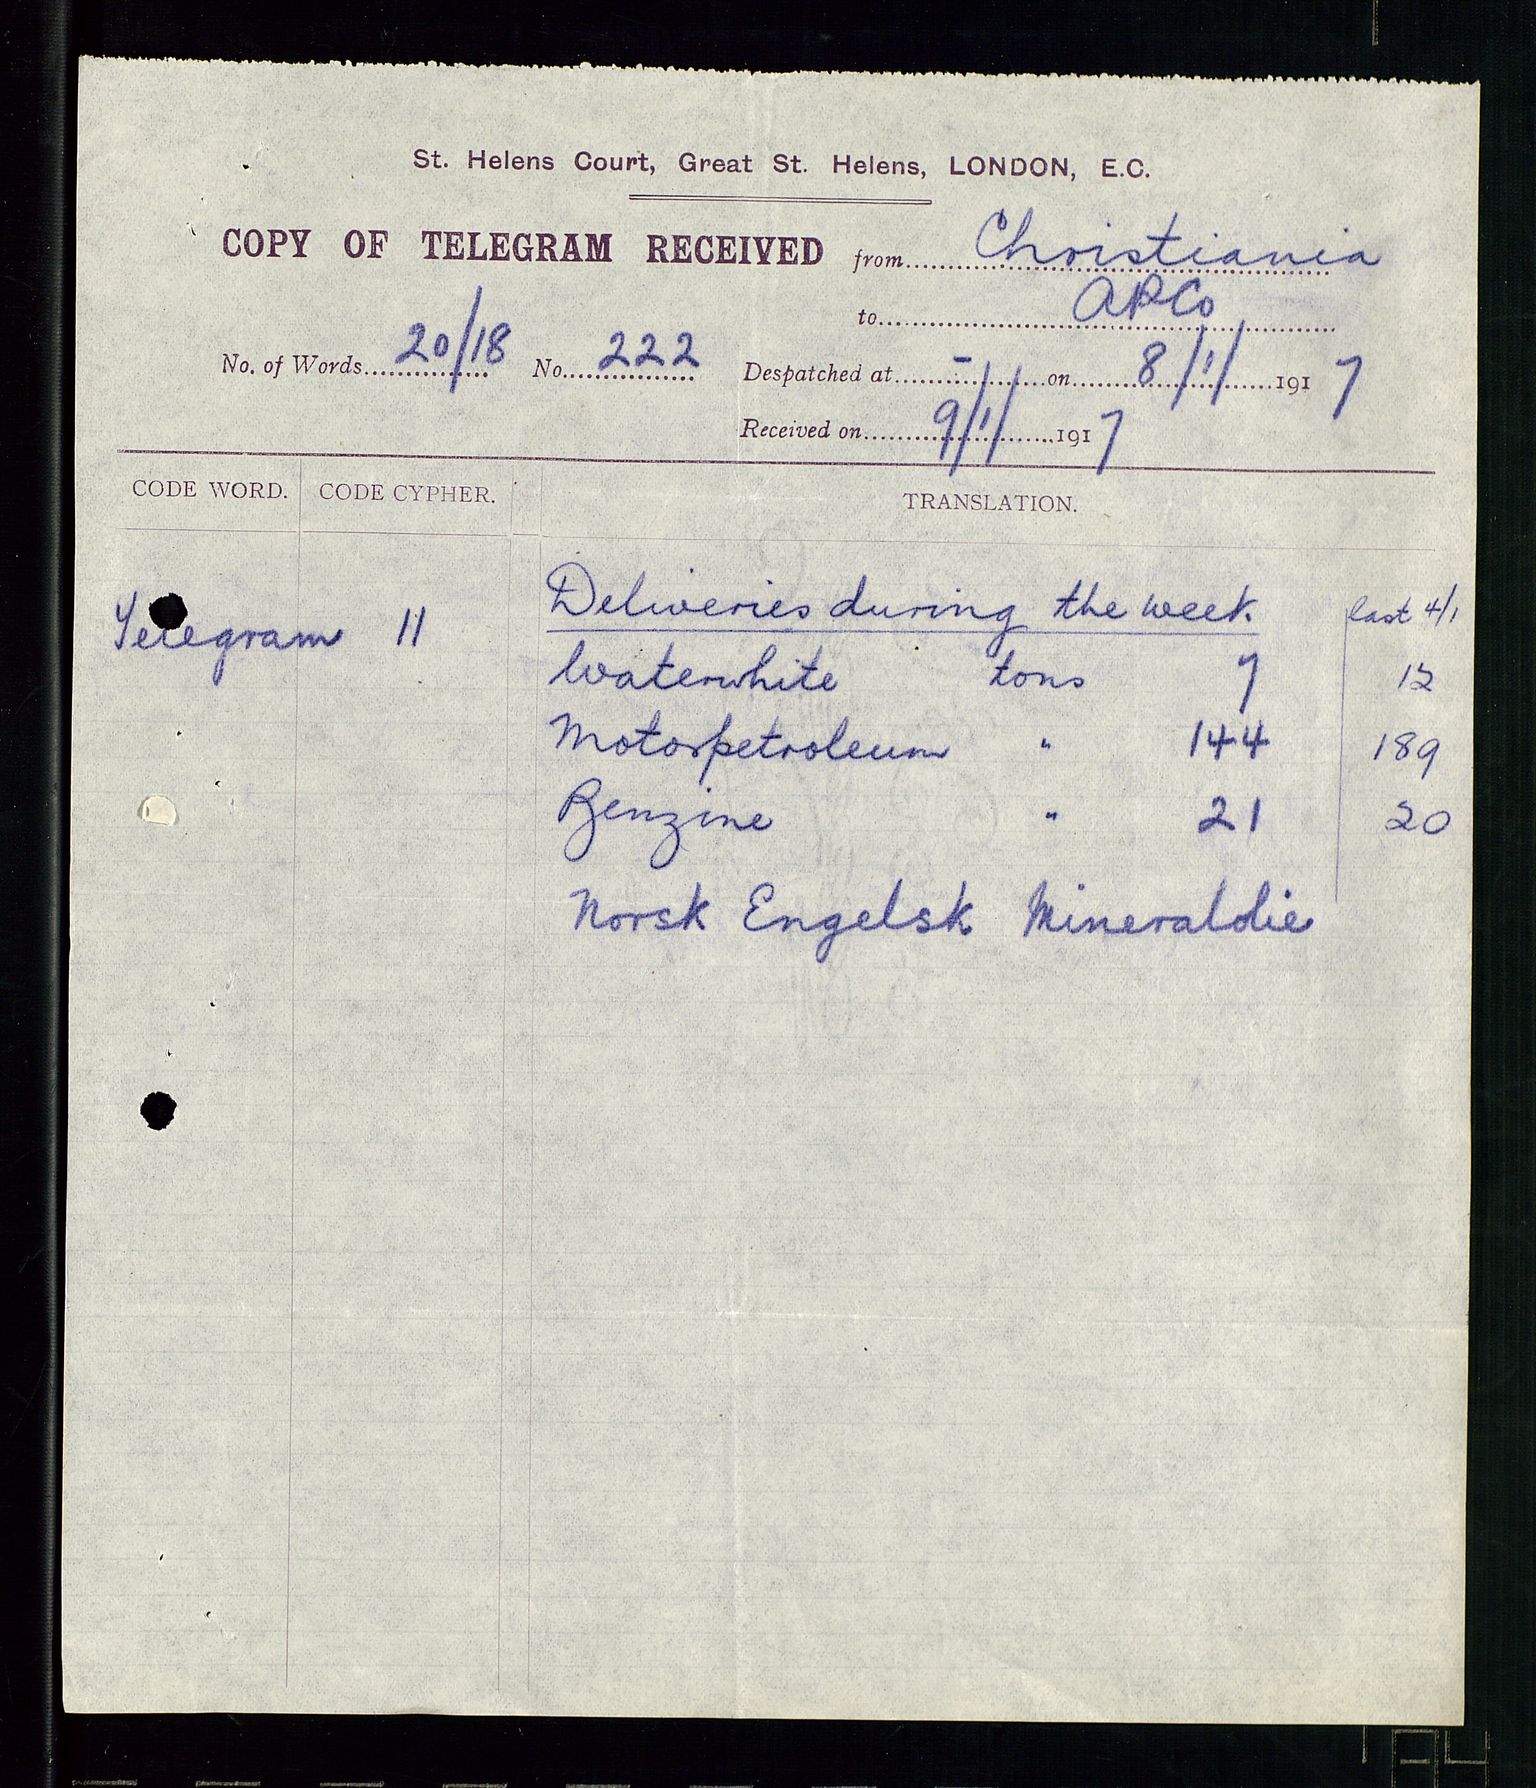 St. Helens Court, Great St. Helens, LONDON, E.C.
COPY OF TELEGRAM RECEIVED from Christiania
to APCo
No. of Words 20/18 No. 222 Despatched at - on 8/1/ 1917
Received on 9/1/ 1917
CODE WORD. CODE CYPHER. TRANSLATION.
Telegram 11 Deliveries during the week last 4/1
Waterwhite tons 7 12
Motorpetroleum " 144 189
Benzine " 21 20
Norsk Engelsk Mineralolie